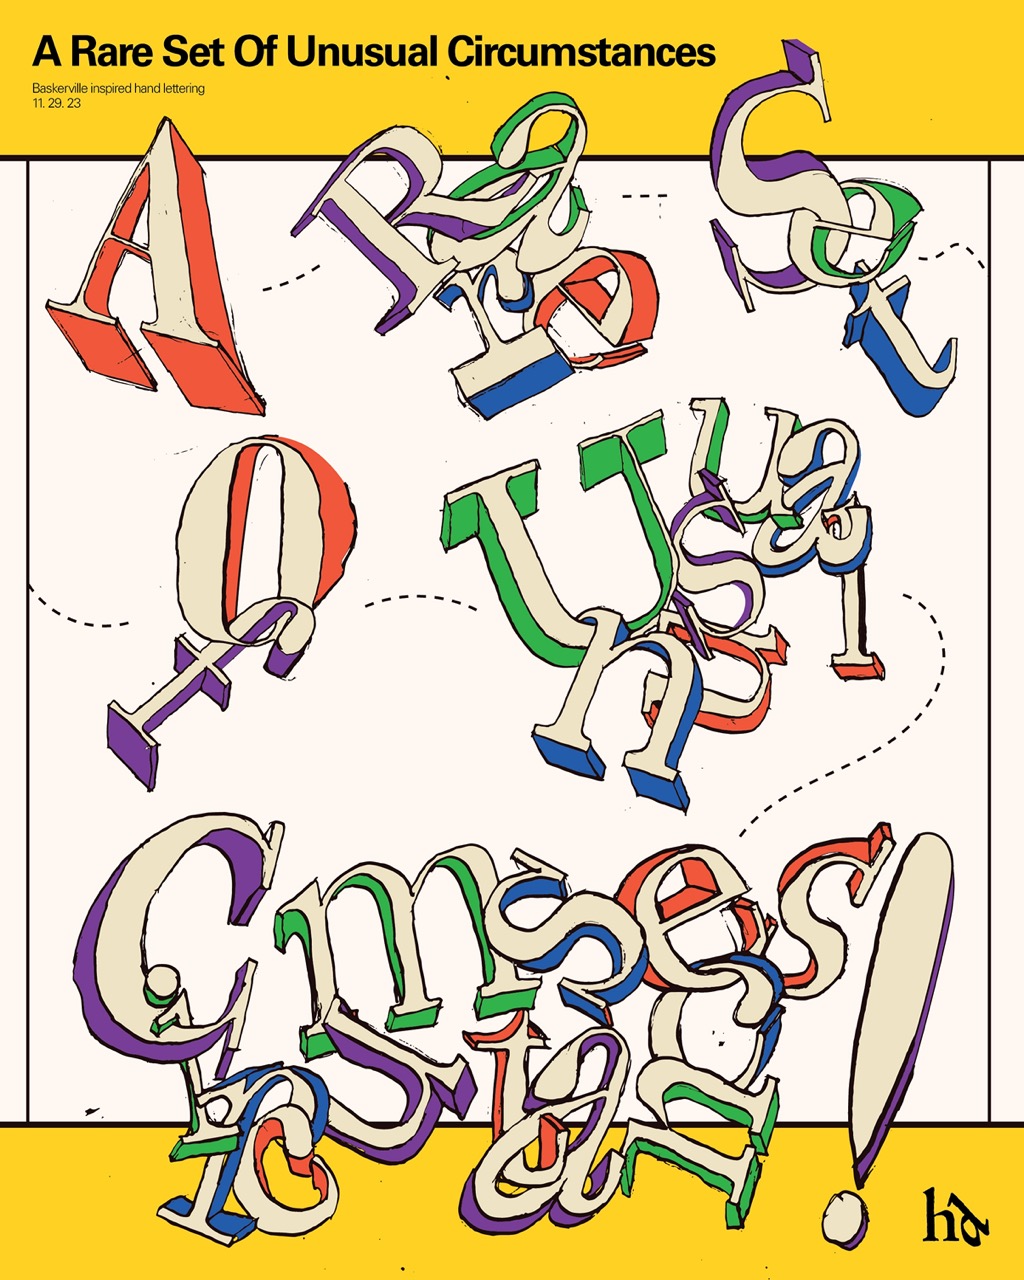 A Rare Set Of Unusual Circumstances
Baskerville inspired hand lettering
11. 29. 23
A Rare Set
Of Unusual
Circumstances!
ha